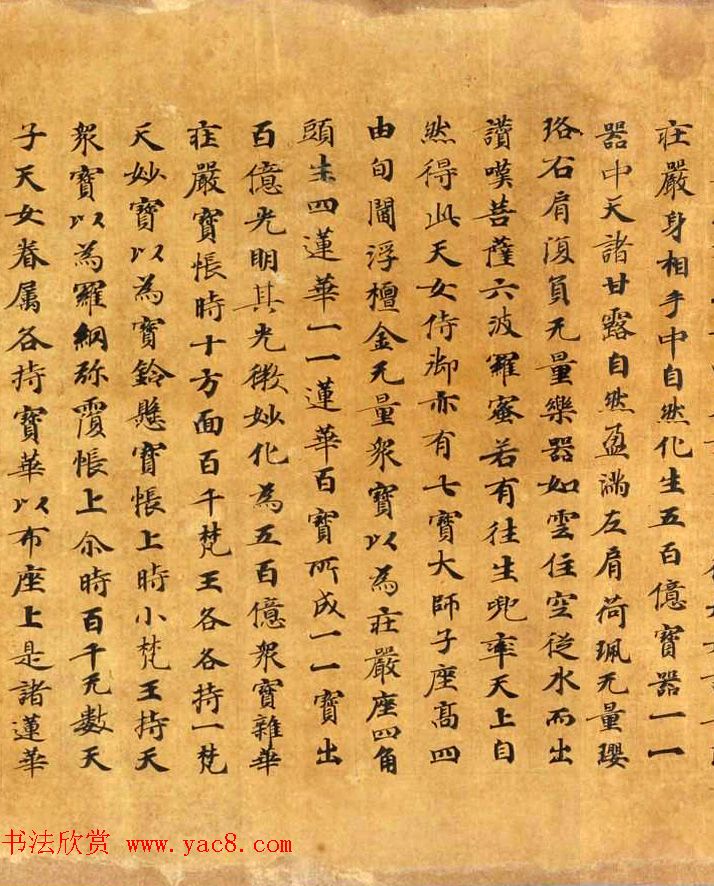 莊嚴身相手中自然化生五百億寶器一一
器中天諸甘露自然盈滿左肩荷珮无量瓔
珞右肩復負无量樂器如雲住空從水而出
讚嘆菩薩六波羅蜜若有往生兜率天上自
然得此天女侍御亦有七寶大師子座高四
由旬閻浮檀金无量衆寶以為莊嚴座四角
頭生四蓮華一一蓮華百寶所成一一寶出
百億光明其光微妙化為五百億衆寶雜華
莊嚴寶帳時十方面百千梵王各各持一梵
天妙寶以為寶鈴懸寶帳上時小梵王持天
衆寶以為羅網弥覆帳上尒時百千无數天
子天女眷属各持寶華以布座上是諸蓮華
书法欣赏 www.yac8.com